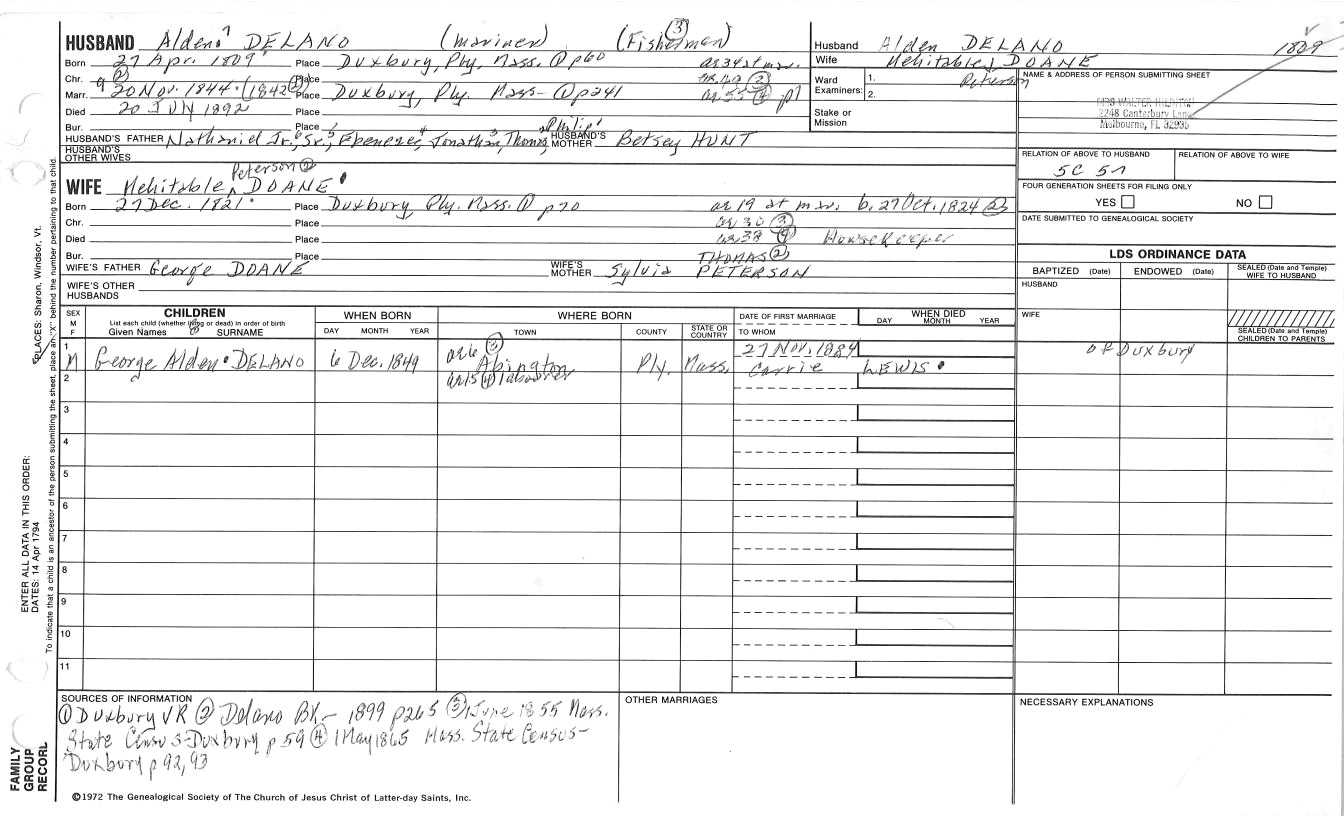 HUSBAND Alden⁷ DELANO (Mariner) (Fisherman) ③
Born 27 Apr. 1809 Place Duxbury, Ply, Mass. ① p60 ae 34 at mar.
Chr. Place
Marr. 20 Nov. 1844. (1842②) Place Duxbury, Ply. Mass- ① p241 ae 55 ④
Died 20 July 1892 Place
Bur. Place
HUSBAND'S FATHER Nathaniel Jr.⁶, Sr.⁵, Ebenezer⁴, Jonathan³, Thomas², Philip¹ HUSBAND'S MOTHER Betsey HUNT
HUSBAND'S OTHER WIVES
Husband Alden DELANO 1809
Wife Mehitable Peterson DOANE
Ward Examiners: 1.
2.
Stake or Mission
NAME & ADDRESS OF PERSON SUBMITTING SHEET
MRS WALTER
2248 Canterbury Lane
Melbourne, FL 32935
RELATION OF ABOVE TO HUSBAND RELATION OF ABOVE TO WIFE
5C 5r
FOUR GENERATION SHEETS FOR FILING ONLY
YES NO
DATE SUBMITTED TO GENEALOGICAL SOCIETY
Peterson ②
WIFE Mehitable DOANE
Born 27 Dec. 1821. Place Duxbury, Ply. Mass. ① p70 ae 19 at mar. b. 27 Oct. 1824 ②
Chr. Place ae 30 ③
Died Place ae 38 ④ Housekeeper
Bur. Place THOMAS ②
WIFE'S FATHER George DOANE WIFE'S MOTHER Sylvia PETERSON
WIFE'S OTHER HUSBANDS
LDS ORDINANCE DATA
BAPTIZED (Date) ENDOWED (Date) SEALED (Date and Temple) WIFE TO HUSBAND
HUSBAND
WIFE
SEALED (Date and Temple) CHILDREN TO PARENTS
SEX M F
CHILDREN
List each child (whether living or dead) in order of birth
Given Names SURNAME
WHEN BORN
DAY MONTH YEAR
WHERE BORN
TOWN COUNTY STATE OR COUNTRY
DATE OF FIRST MARRIAGE
TO WHOM
WHEN DIED
DAY MONTH YEAR
1 M George Alden DELANO 6 Dec. 1849 ae 6 ③ Abington Ply. Mass. 27 Nov. 1884 Carrie LEWIS of Duxbury
ae 15 ④ laborer
2
3
4
5
6
7
8
9
10
11
SOURCES OF INFORMATION
① Duxbury VR ② Delano BK.- 1899 p265 ③ 1 June 1855 Mass.
State Census-Duxbury p 59 ④ 1 May 1865 Mass. State Census-
Duxbury p 92, 93
OTHER MARRIAGES
NECESSARY EXPLANATIONS
©1972 The Genealogical Society of The Church of Jesus Christ of Latter-day Saints, Inc.
FAMILY GROUP RECORD
ENTER ALL DATA IN THIS ORDER:
DATES: 14 Apr 1794
PLACES: Sharon, Windsor, Vt.
To indicate that a child is an ancestor of the person submitting the sheet, place an "X" behind the number pertaining to that child.